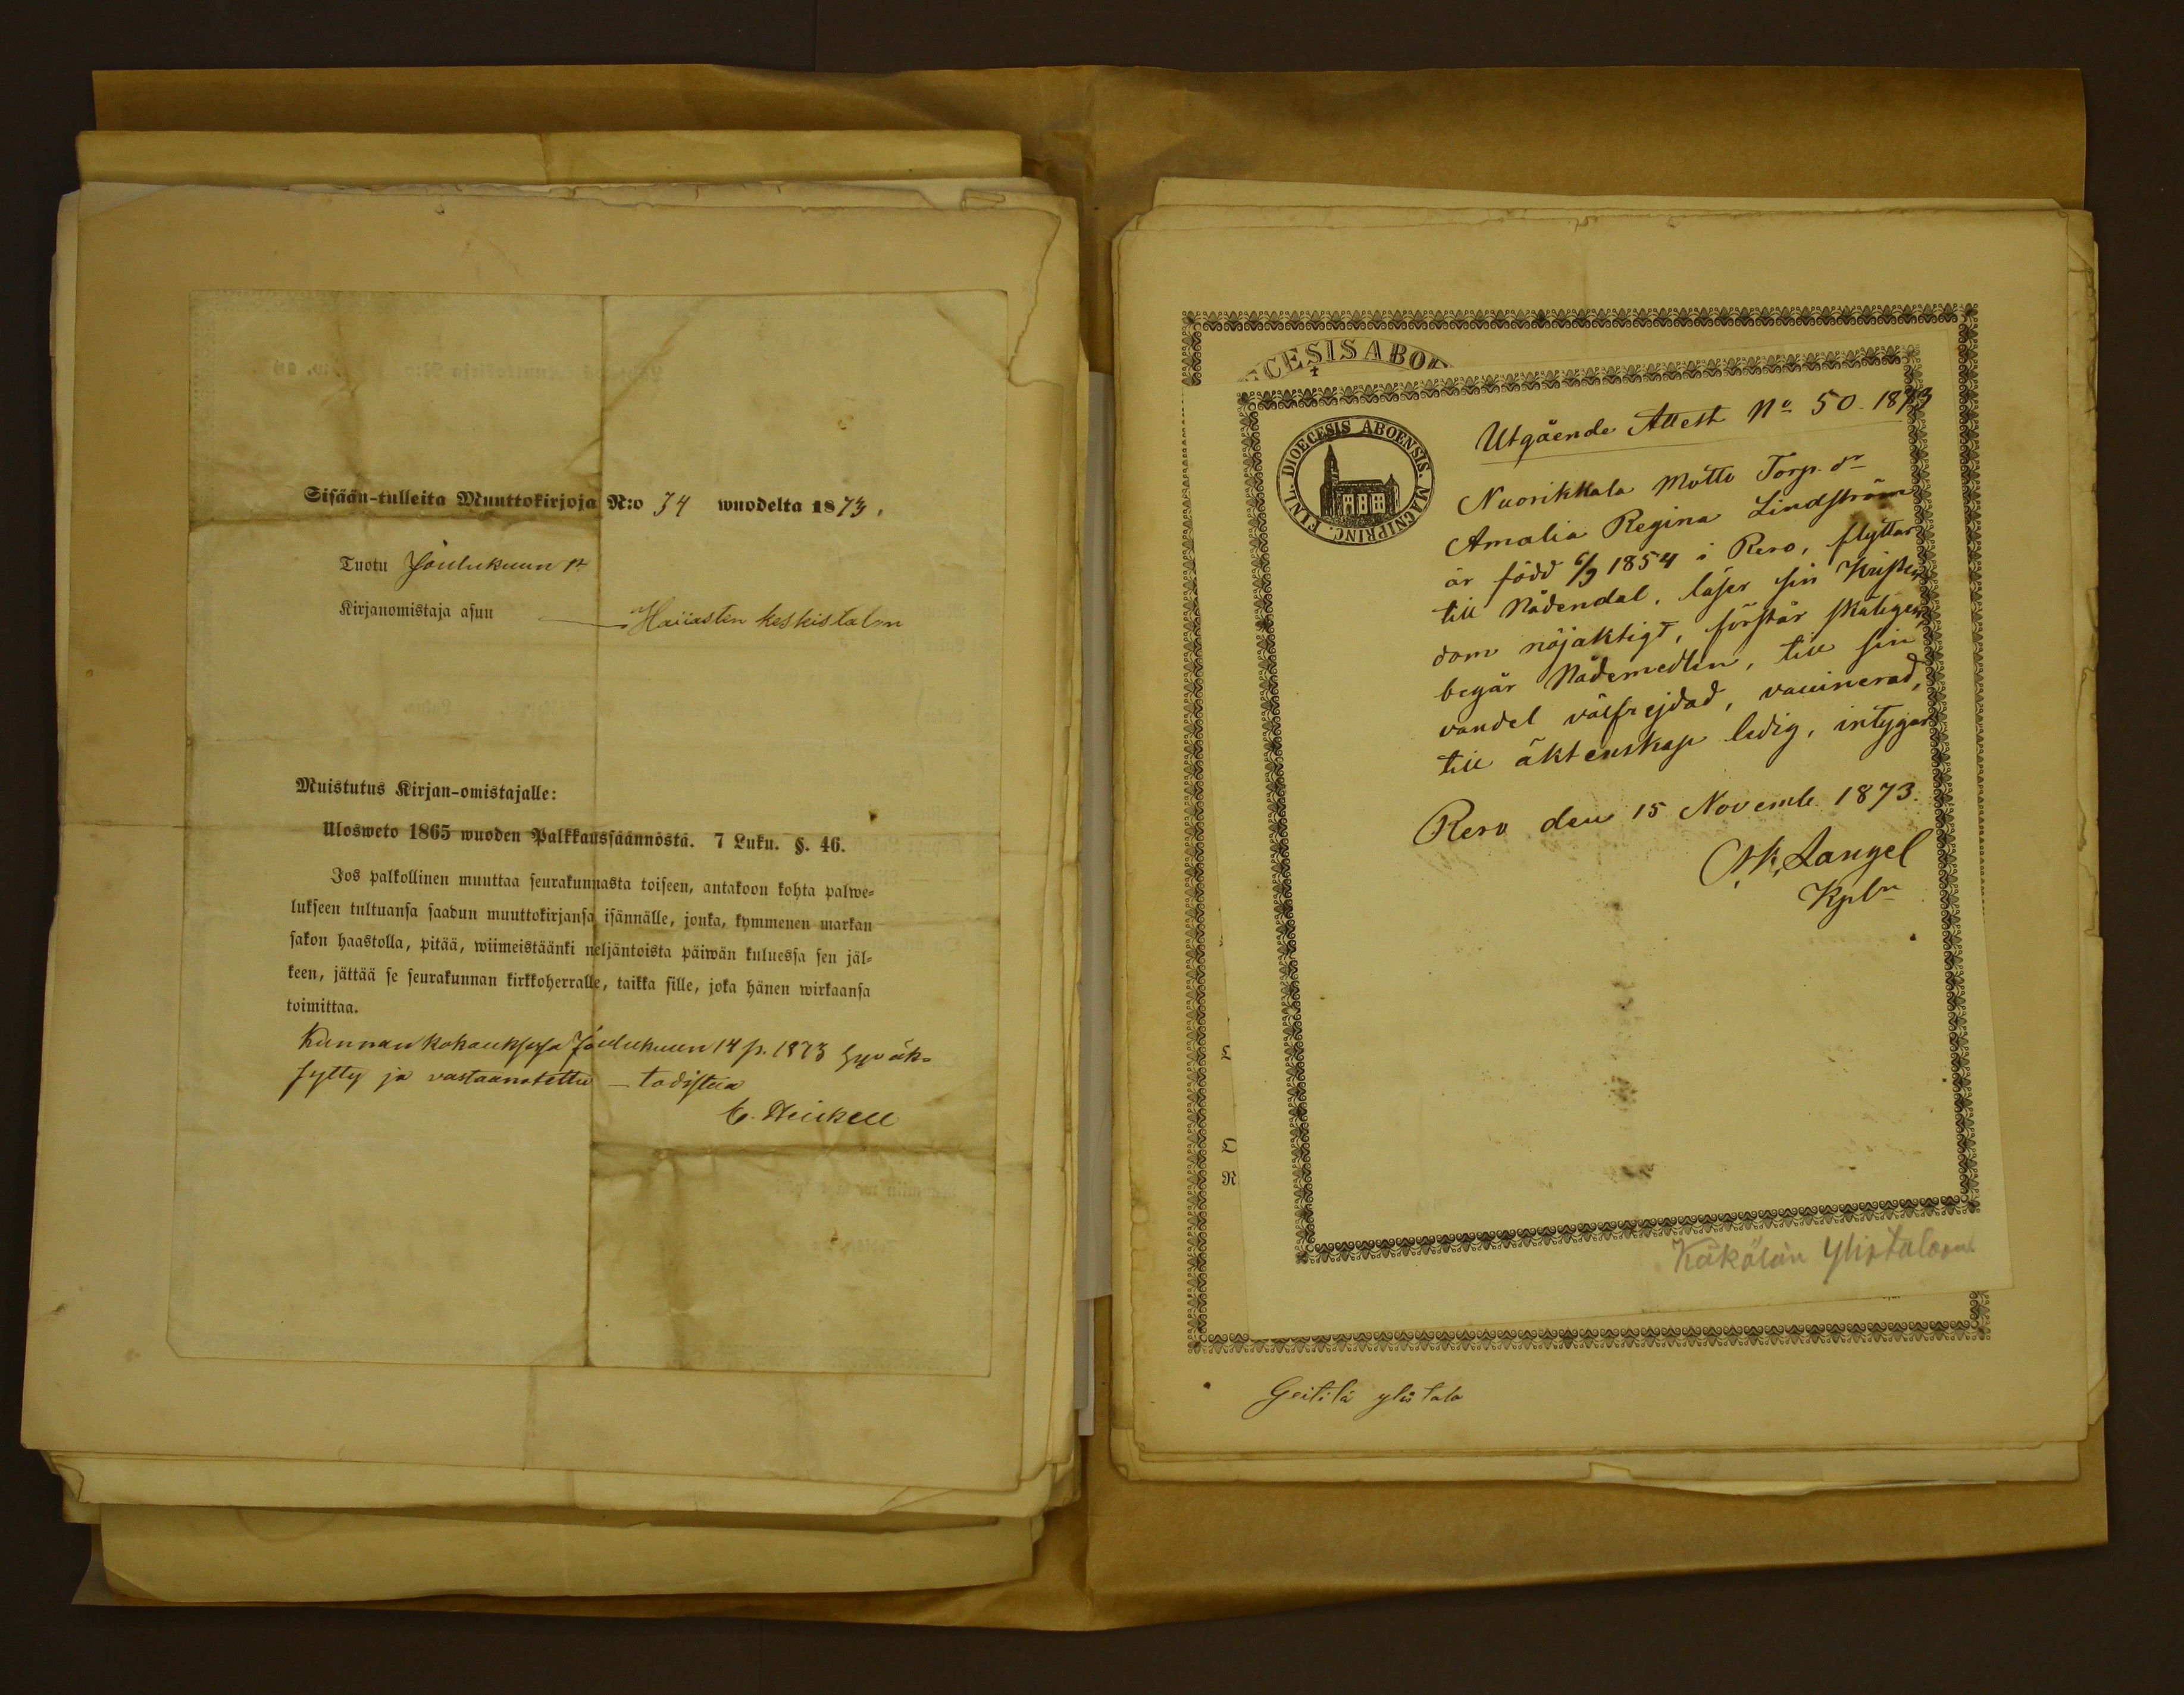 Sisään-tulleita Muuttokirjoja N:o 34 wuodelta 1873.
Tuotu Joulukuun
Kirjanomistaja asuu Haiiastin keskistaloon
Muistutus Kirjan-omistajalle:
Ulosweto 1865 wuoden Palkkaussäännöstä. 7 Luku. §. 46.
Jos palkollinen muuttaa seurakunnasta toiseen, antakoon kohta palwe-
lukseen tultuansa saadun muuttokirjansa isännälle, jonka, kymmenen markan
sakon haastolla, pitää, wiimeistäänki neljäntoista päiwän kuluessa sen jäl-
keen, jättää se seurakunnan kirkkoherralle, taikka sille, joka hänen wirkaansa
toimittaa.
Kunnankokouksessa Joulukuun 14 p. 1873 hyväk-
sytty ja vastaanotettu – todistaa
C. Heickell
CESIS ABOE
DIOECESIS ABOENSIS. MAGNIPRINC. FINL.
Utgående Attest No 50. 1873
Nuorikkala Mötto Torp. dr
Amalia Regina Lindström
är född 6/9 1854 i Reso, flyttar
till Nådendal, läser sin Kristen
dom nöjaktigt, förstår skäligen,
begår Nådemedlen, till sin
vandel välfrejdad, vaccinerad,
till äktenskap ledig, intygar
Reso den 15 Novemb. 1873.
Langel
Kpln
Käkölän Ylistaloon
L
O
N
Geitilä ylistalo